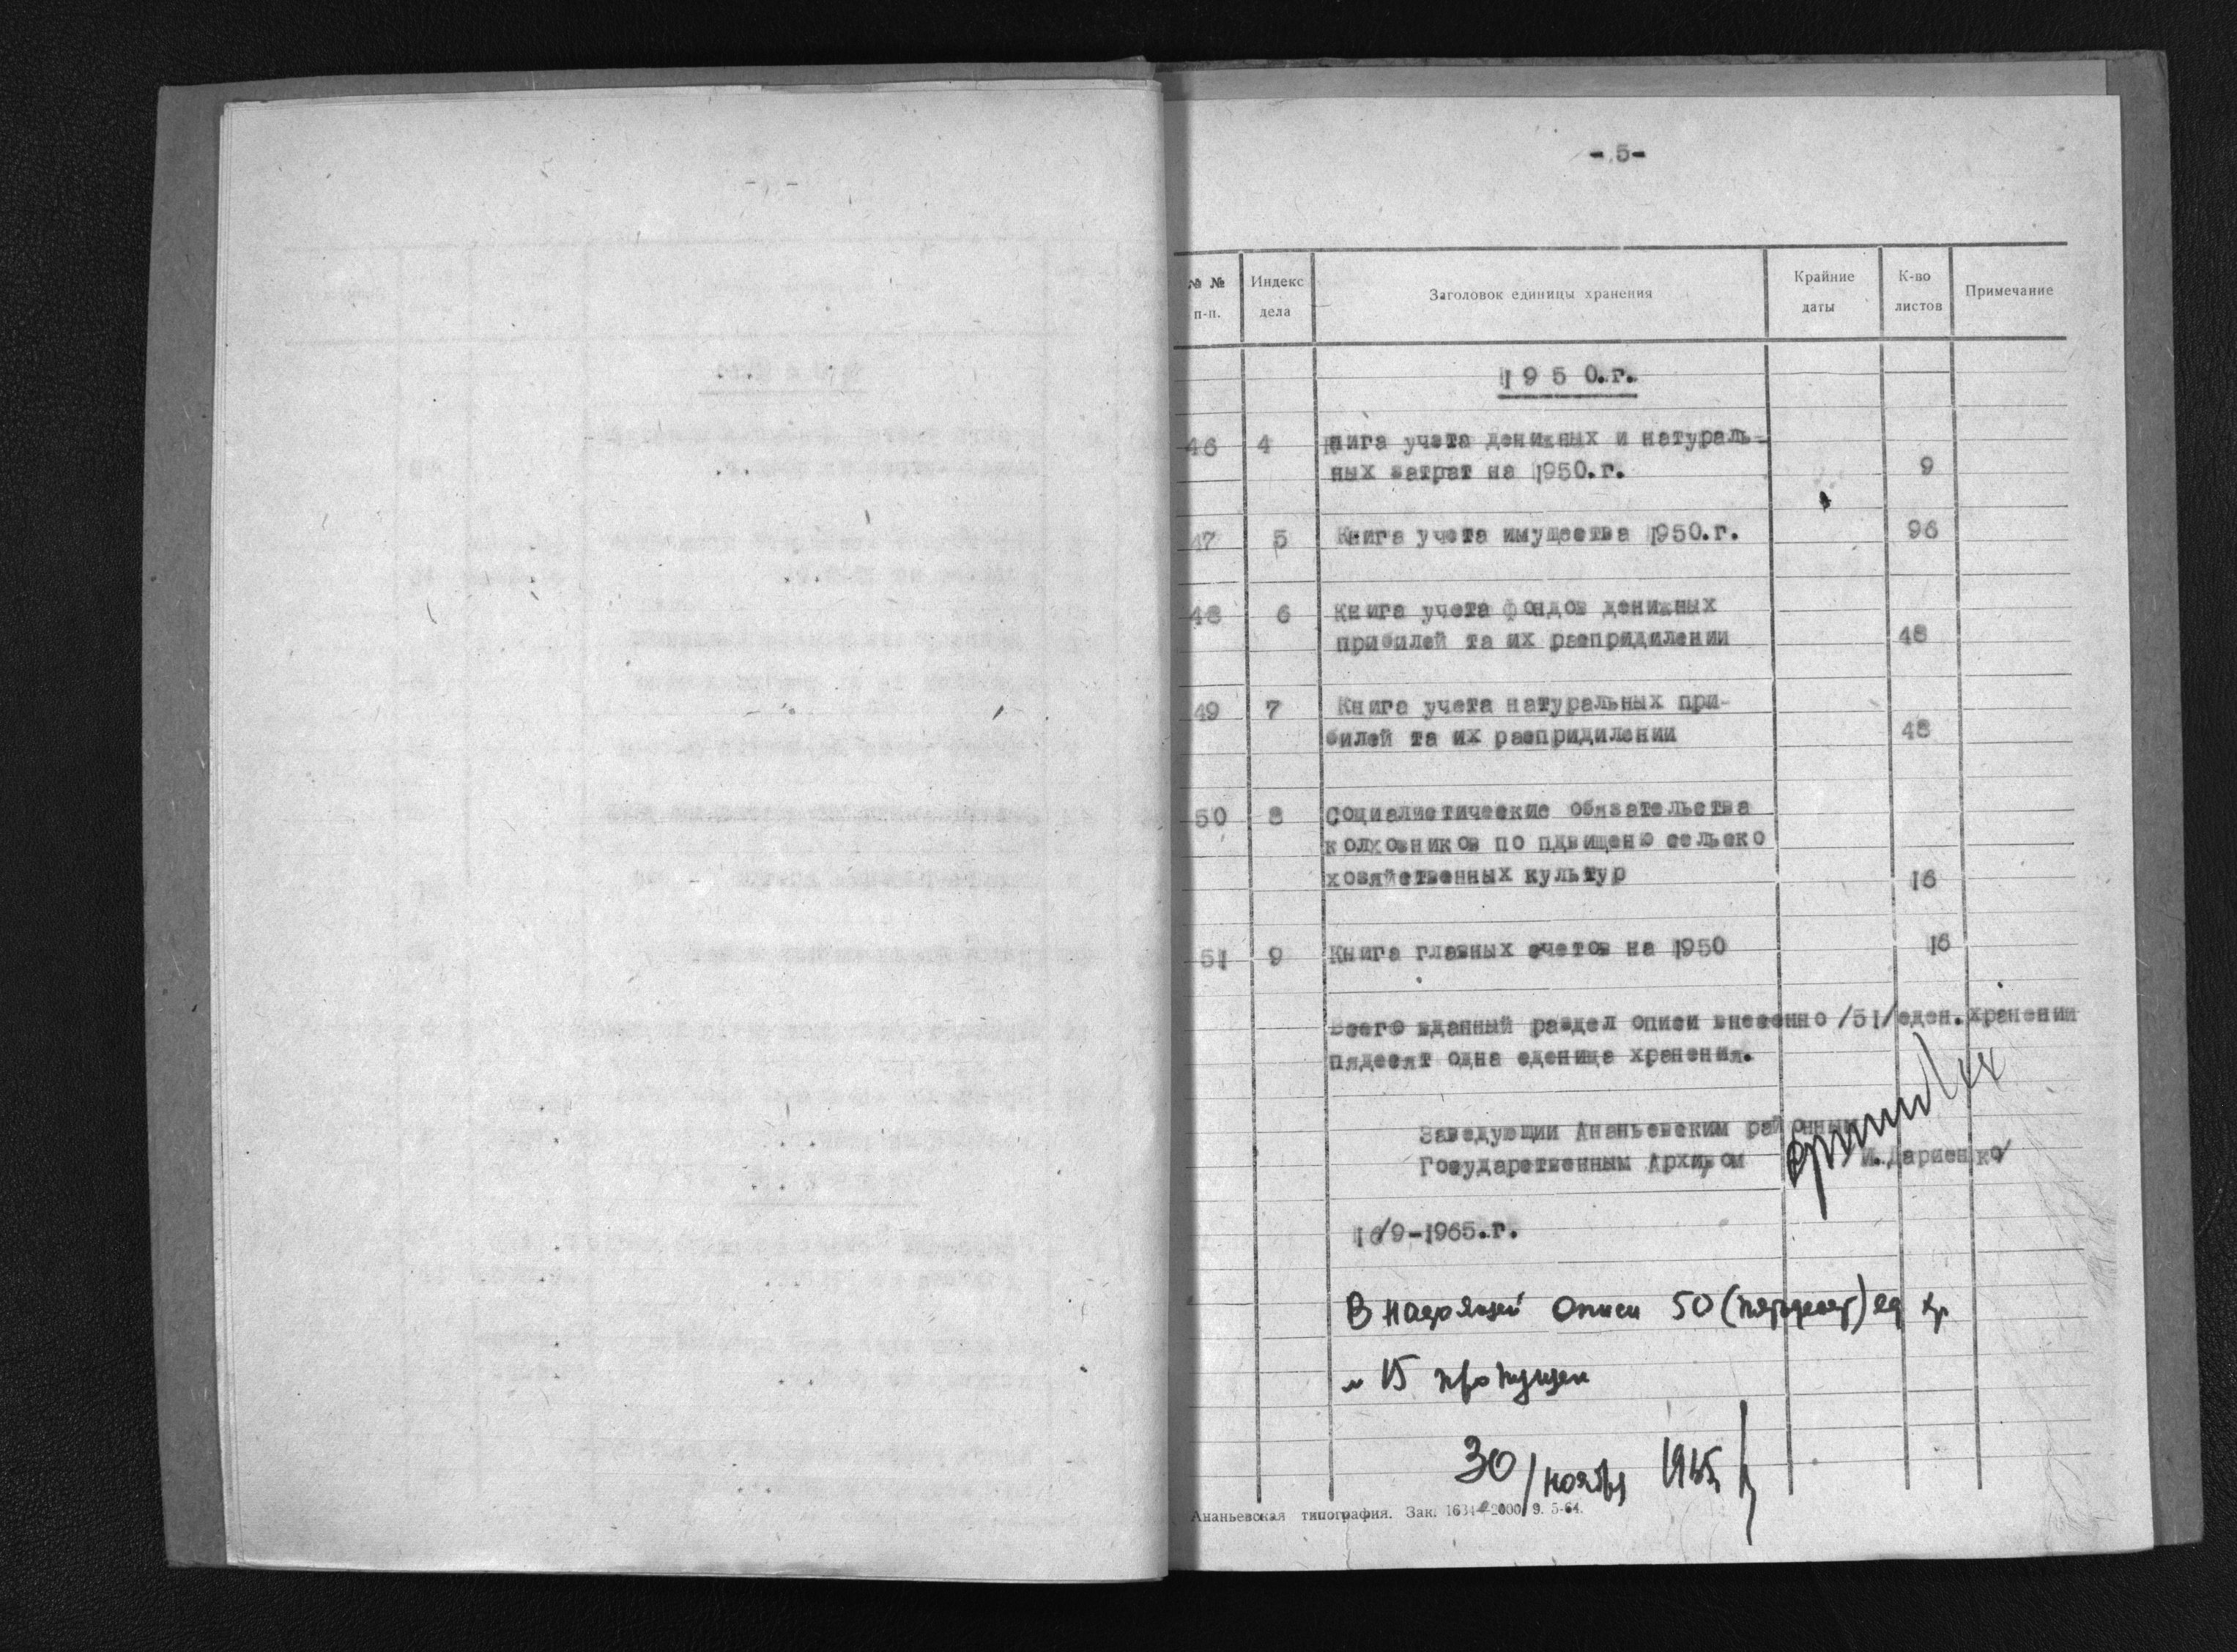 -.5-
№ № Индекс Заголовок единицы хранения Крайние К-во Примечание
п-п. дела даты листов
1 9 5 0.г.
46 4 Книга учета денижных и натураль-
ных затрат на 1950.г. 9
47 5 Книга учета имущества 1950.г. 96
48 6 Книга учета фондов денижных
прибилей та их распридилении 48
49 7 Книга учета натуральных при-
билей та их распридилении 48
50 8 Социалистические обязательства
колхозников по пдвищеню сельско
хозяйственных культур 16
51 9 Книга главных счетов на 1950 16
Всего вданный раздел описи внесенно /51/ еден. хранении
пядесят одна еденица хранения.
Заведующии Ананьевским районным
Государственным Архивом И.Дариенко
16/9-1965.г.
В настоящей описи 50 (пятьдесят) ед хр
№ 15 пропущен
30/ноября 1965
Ананьевская типография. Зак. 1634-2000 9. 5-64.